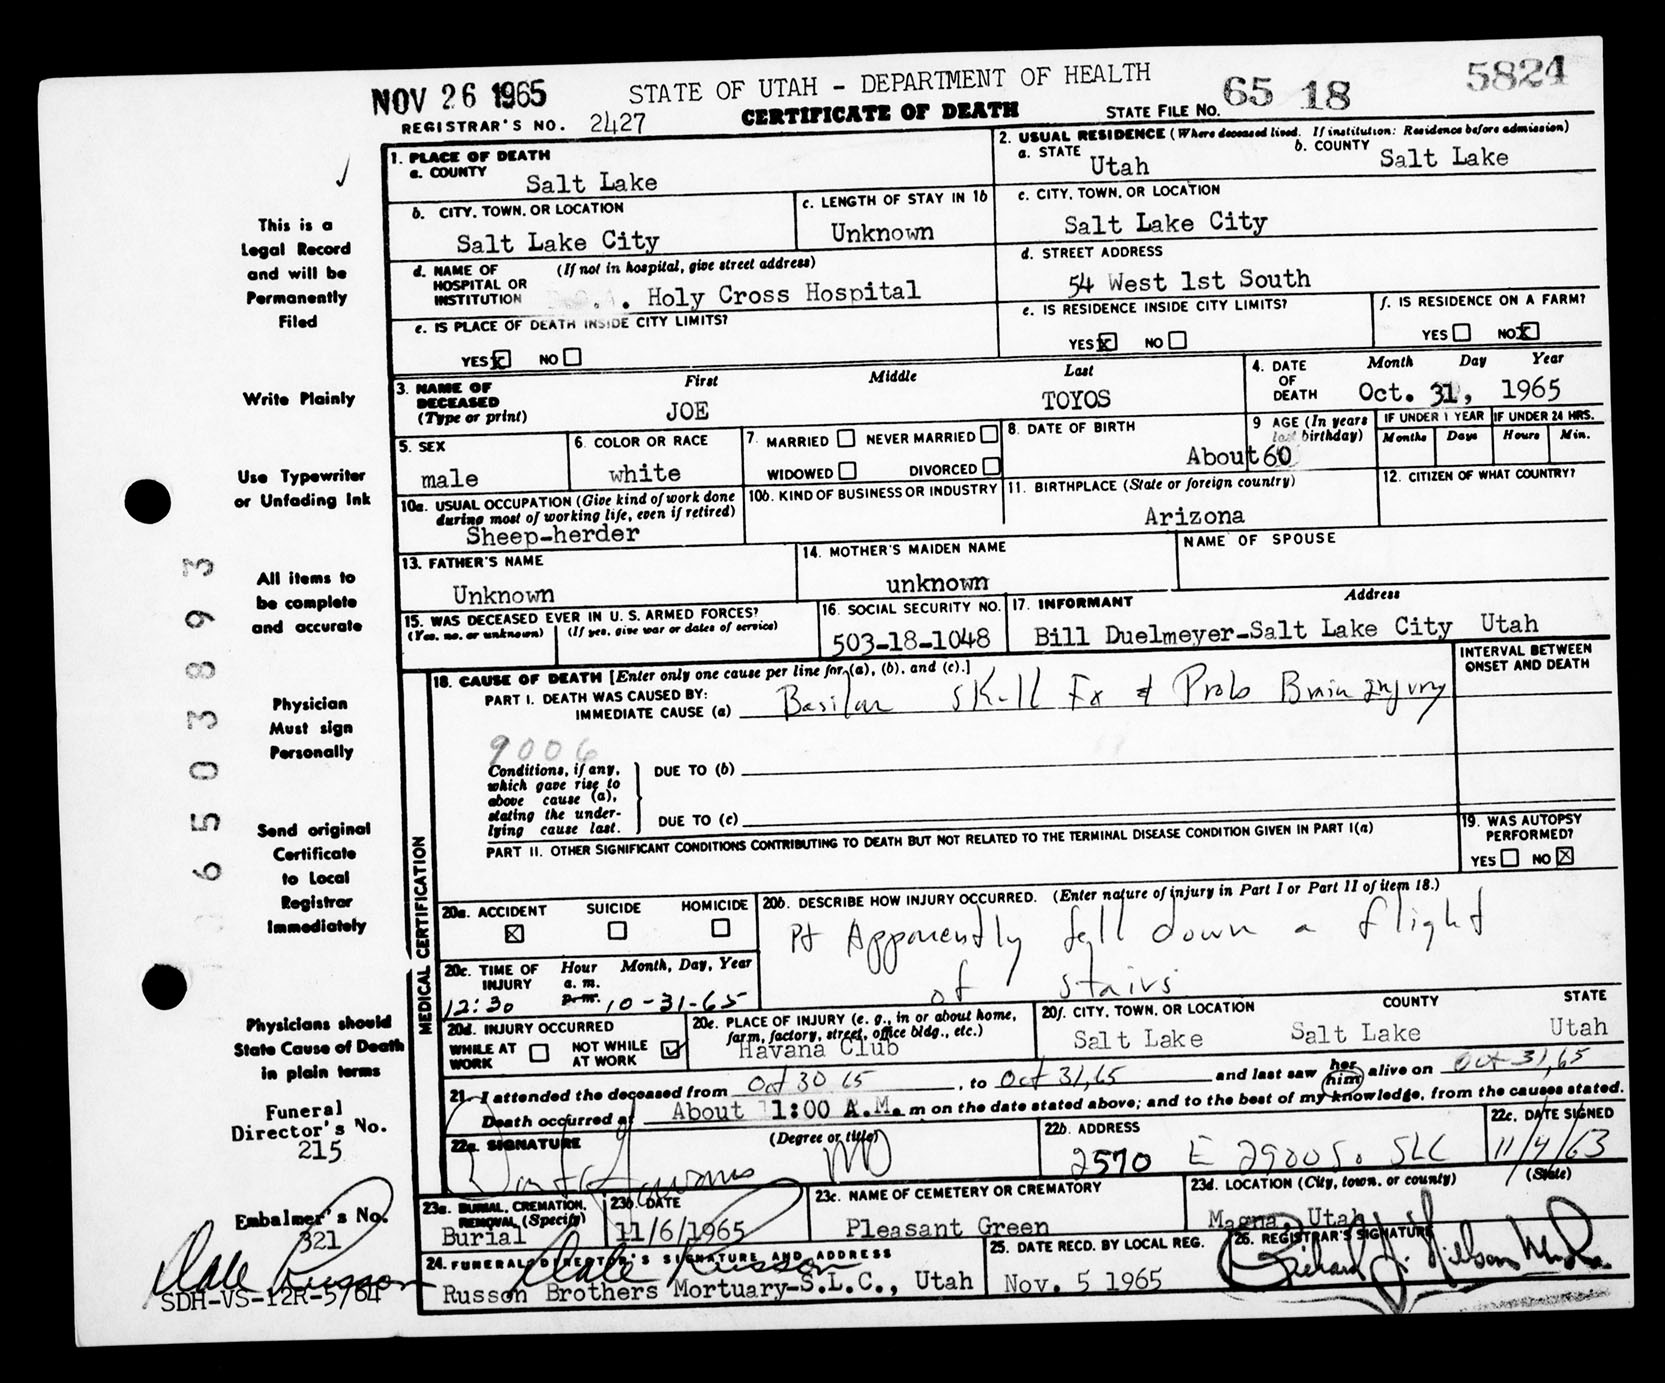 NOV 26 1965
STATE OF UTAH – DEPARTMENT OF HEALTH
CERTIFICATE OF DEATH
STATE FILE NO. 65 18
5824
REGISTRAR'S NO. 2427
1. PLACE OF DEATH
a. COUNTY
Salt Lake
2. USUAL RESIDENCE (Where deceased lived. If institution: Residence before admission)
a. STATE
Utah
b. COUNTY
Salt Lake
b. CITY, TOWN, OR LOCATION
Salt Lake City
c. LENGTH OF STAY IN 1b
Unknown
c. CITY, TOWN, OR LOCATION
Salt Lake City
d. NAME OF HOSPITAL OR INSTITUTION
(If not in hospital, give street address)
Holy Cross Hospital
d. STREET ADDRESS
54 West 1st South
e. IS PLACE OF DEATH INSIDE CITY LIMITS?
YES x NO
e. IS RESIDENCE INSIDE CITY LIMITS?
YES x NO
f. IS RESIDENCE ON A FARM?
YES NO x
3. NAME OF DECEASED (Type or print)
First Middle Last
JOE TOYOS
4. DATE OF DEATH
Month Day Year
Oct. 31, 1965
5. SEX
male
6. COLOR OR RACE
white
7. MARRIED NEVER MARRIED
WIDOWED DIVORCED
8. DATE OF BIRTH
9 AGE (In years last birthday)
About 60
IF UNDER 1 YEAR
Months Days
IF UNDER 24 HRS.
Hours Min.
10a. USUAL OCCUPATION (Give kind of work done during most of working life, even if retired)
Sheep-herder
10b. KIND OF BUSINESS OR INDUSTRY
11. BIRTHPLACE (State or foreign country)
Arizona
12. CITIZEN OF WHAT COUNTRY?
13. FATHER'S NAME
Unknown
14. MOTHER'S MAIDEN NAME
unknown
NAME OF SPOUSE
15. WAS DECEASED EVER IN U. S. ARMED FORCES?
(Yes, no, or unknown) (If yes, give war or dates of service)
16. SOCIAL SECURITY NO.
503-18-1048
17. INFORMANT Address
Bill Duelmeyer-Salt Lake City Utah
MEDICAL CERTIFICATION
18. CAUSE OF DEATH [Enter only one cause per line for (a), (b), and (c).]
INTERVAL BETWEEN ONSET AND DEATH
PART I. DEATH WAS CAUSED BY:
IMMEDIATE CAUSE (a) Basilar Skull Fx & Prob Brain injury
9006
Conditions, if any, which gave rise to above cause (a), stating the underlying cause last.
DUE TO (b)
DUE TO (c)
PART II. OTHER SIGNIFICANT CONDITIONS CONTRIBUTING TO DEATH BUT NOT RELATED TO THE TERMINAL DISEASE CONDITION GIVEN IN PART I(a)
19. WAS AUTOPSY PERFORMED?
YES NO x
20a. ACCIDENT SUICIDE HOMICIDE
x
20b. DESCRIBE HOW INJURY OCCURRED. (Enter nature of injury in Part I or Part II of item 18.)
Pt Apparently fell down a flight
of stairs
20c. TIME OF INJURY
Hour Month, Day, Year
a. m.
p. m.
12:30 10-31-65
20d. INJURY OCCURRED
WHILE AT WORK NOT WHILE AT WORK ✓
20e. PLACE OF INJURY (e. g., in or about home, farm, factory, street, office bldg., etc.)
Havana Club
20f. CITY, TOWN, OR LOCATION COUNTY STATE
Salt Lake Salt Lake Utah
21. I attended the deceased from Oct 30 65, to Oct 31, 65 and last saw her him alive on Oct 31, 65
Death occurred at About 1:00 A.M. m on the date stated above; and to the best of my knowledge, from the causes stated.
22a. SIGNATURE (Degree or title)
MD
22b. ADDRESS
2570 E 2900 So. SLC
22c. DATE SIGNED
11/4/63
23a. BURIAL, CREMATION, REMOVAL (Specify)
Burial
23b. DATE
11/6/1965
23c. NAME OF CEMETERY OR CREMATORY
Pleasant Green
23d. LOCATION (City, town, or county) (State)
Magna, Utah
24. FUNERAL DIRECTOR'S SIGNATURE AND ADDRESS
Dale Russon
Russon Brothers Mortuary-S.L.C., Utah
25. DATE RECD. BY LOCAL REG.
Nov. 5 1965
26. REGISTRAR'S SIGNATURE
This is a
Legal Record
and will be
Permanently
Filed
Write Plainly
Use Typewriter
or Unfading Ink
All items to
be complete
and accurate
Physician
Must sign
Personally
Send original
Certificate
to Local
Registrar
Immediately
Physicians should
State Cause of Death
in plain terms
Funeral
Director's No.
215
Embalmer's No.
321
Dale Russon
SDH-VS-12R-5/64
65038993